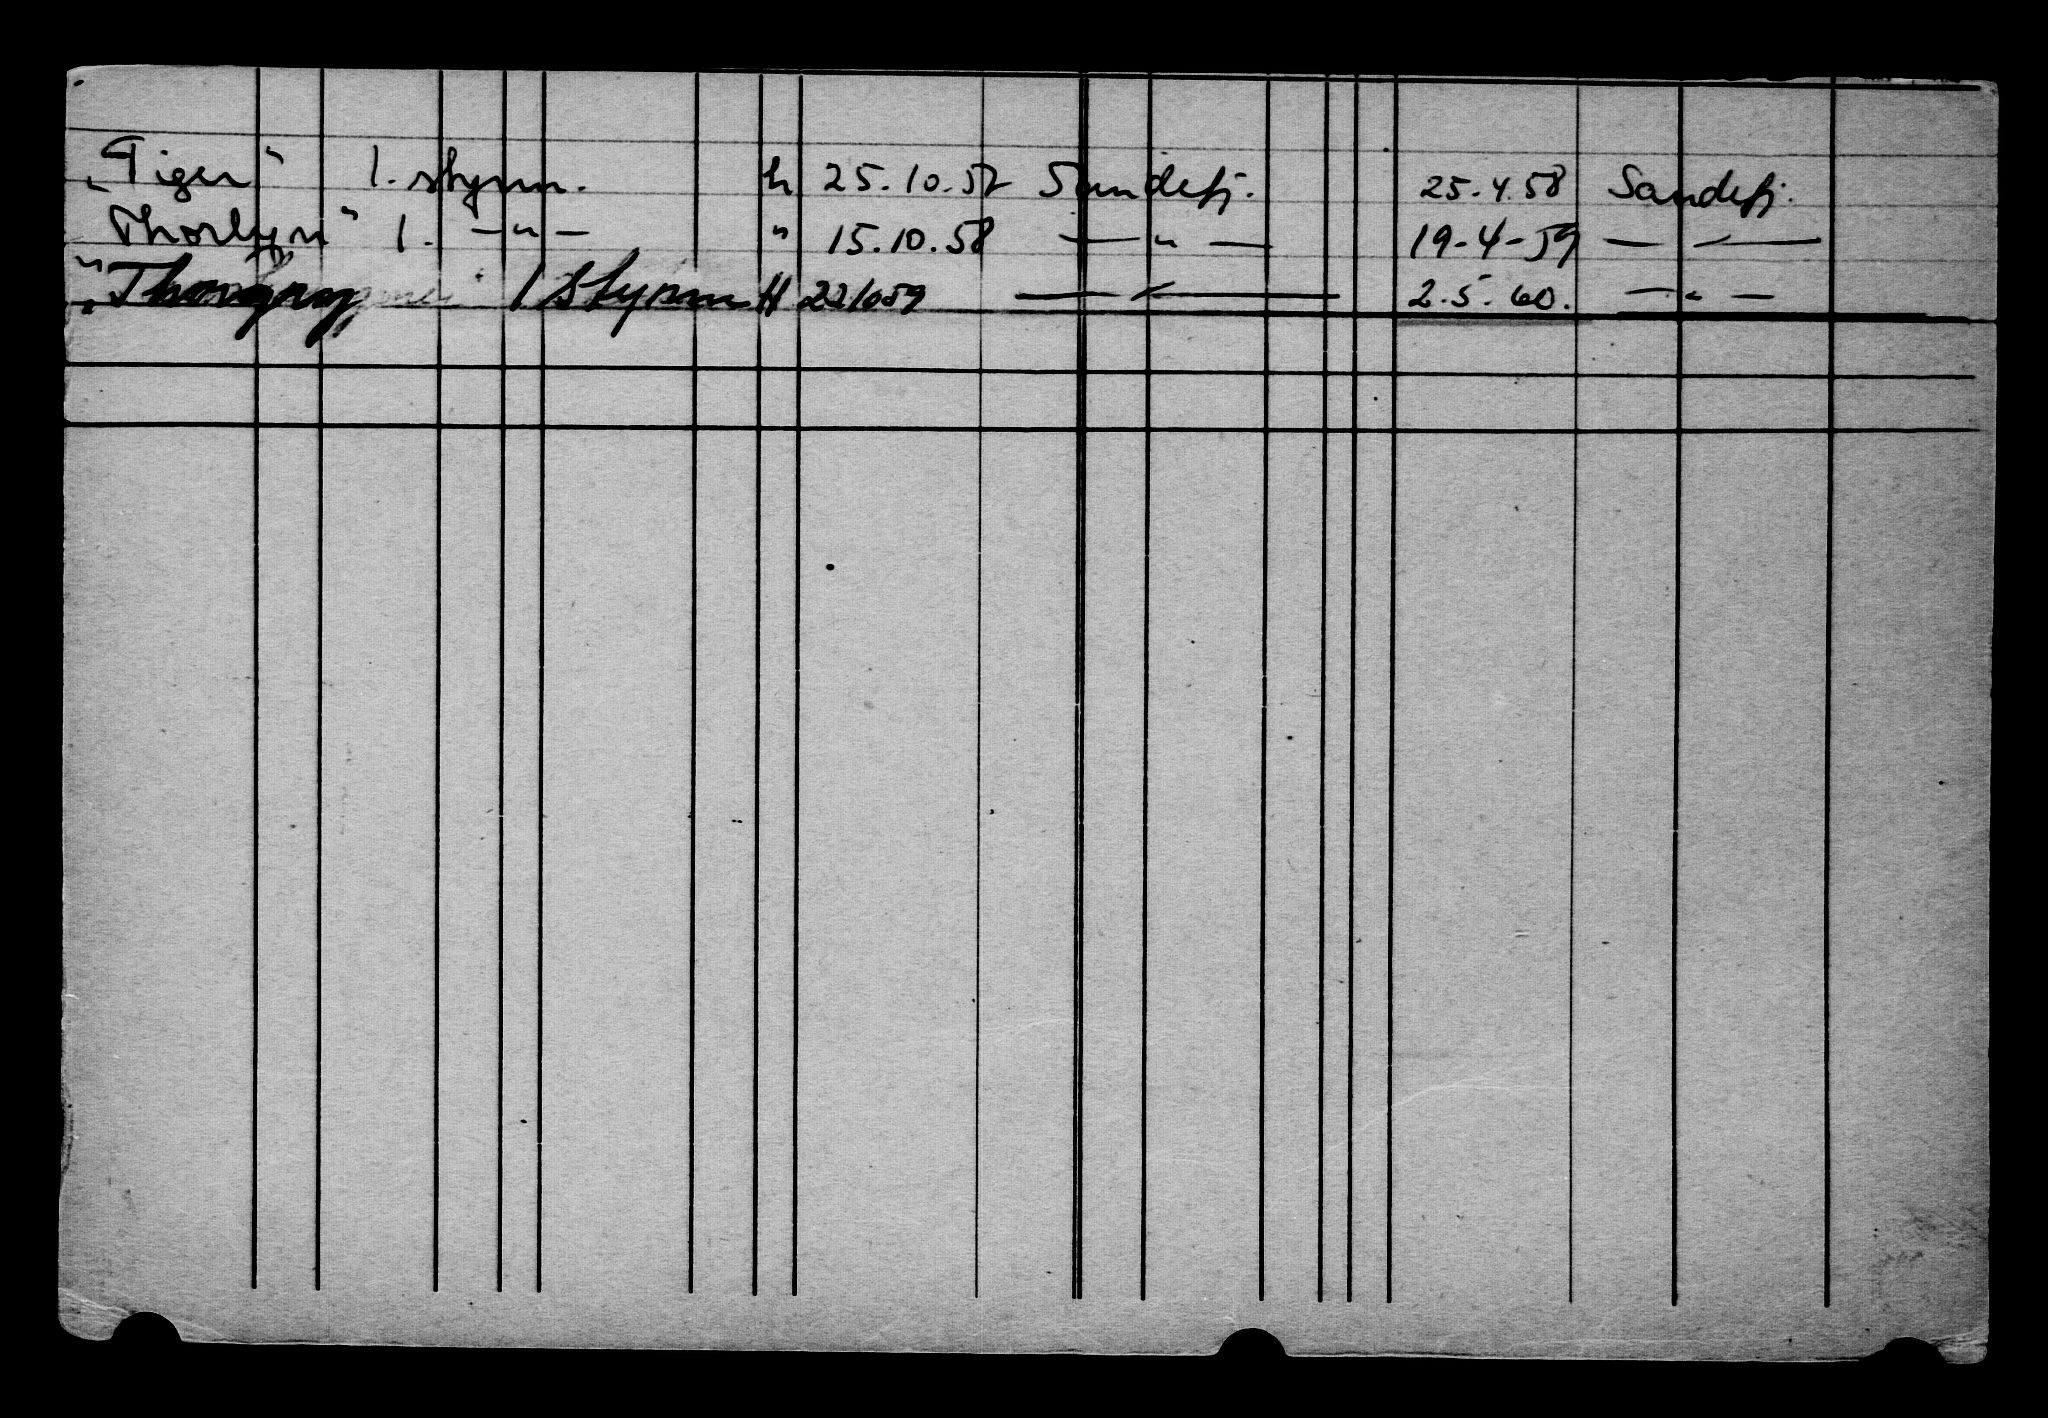 „Tiger“ 1. styrm. h 25.10.57 Sandefj. 25.4.58 Sandefj.
„Thorbjørn“ 1. —„— " 15.10.58 —„— 19-4-59 —„—
„Thorgny“ 1 Styrm H 221059 —„— 2.5.60. —„—